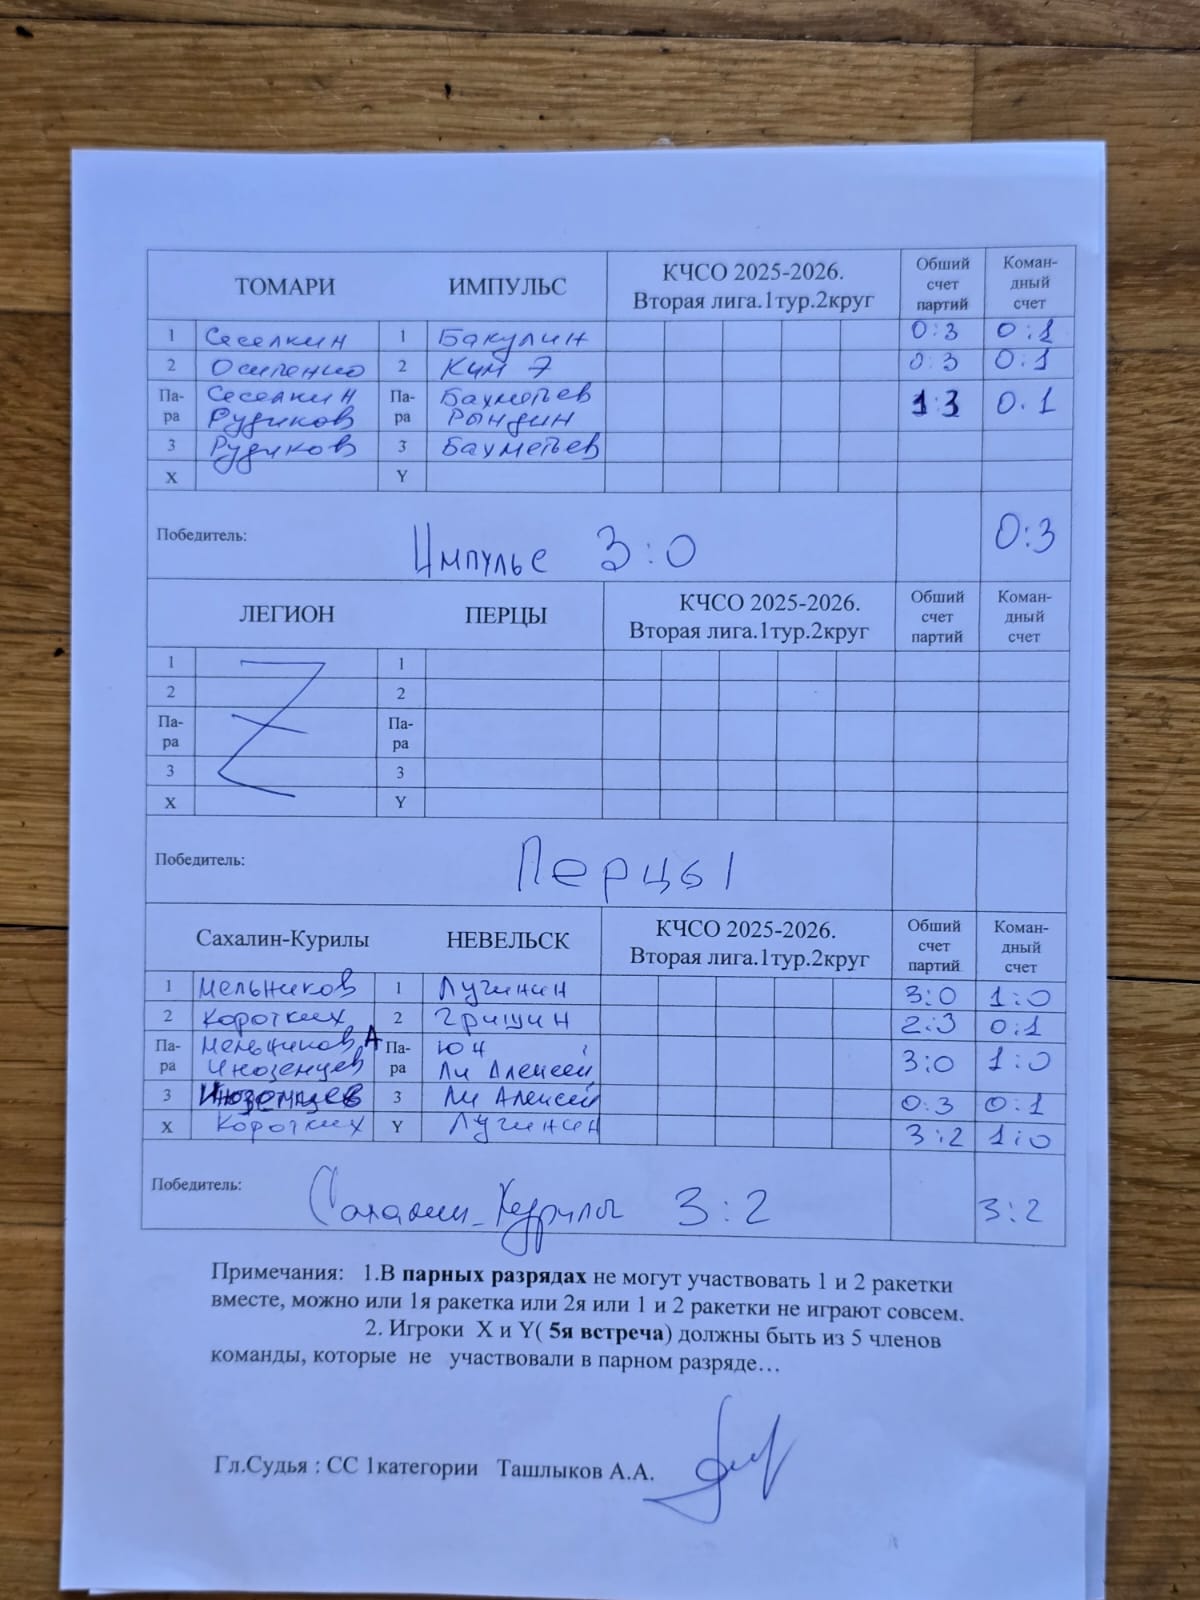 ТОМАРИ ИМПУЛЬС КЧСО 2025-2026. Вторая лига.1тур.2круг Обший счет партий Коман-дный счет
1 Сеселкин 1 Бакулин 0:3 0:1
2 Осипенко 2 Ким Э 0:3 0:1
Па-ра Сеселкин Рудиков Па-ра Бахметьев Рындин 1:3 0:1
3 Рудиков 3 Бахметьев
X Y
Победитель: Импульс 3:0 0:3
ЛЕГИОН ПЕРЦЫ КЧСО 2025-2026. Вторая лига.1тур.2круг Обший счет партий Коман-дный счет
1 1
2 2
Па-ра Па-ра
3 3
X Y
Победитель: Перцы
Сахалин-Курилы НЕВЕЛЬСК КЧСО 2025-2026. Вторая лига.1тур.2круг Обший счет партий Коман-дный счет
1 Мельников 1 Лугинин 3:0 1:0
2 Коротких 2 Гришин 2:3 0:1
Па-ра Мельников А Иноземцев Па-ра Юн Ли Алексей 3:0 1:0
3 Иноземцев 3 Ли Алексей 0:3 0:1
X Коротких Y Лугинин 3:2 1:0
Победитель: Сахалин-Курилы 3:2 3:2
Примечания: 1.В парных разрядах не могут участвовать 1 и 2 ракетки
вместе, можно или 1я ракетка или 2я или 1 и 2 ракетки не играют совсем.
2. Игроки X и Y( 5я встреча) должны быть из 5 членов
команды, которые не участвовали в парном разряде…
Гл.Судья : СС 1категории Ташлыков А.А.